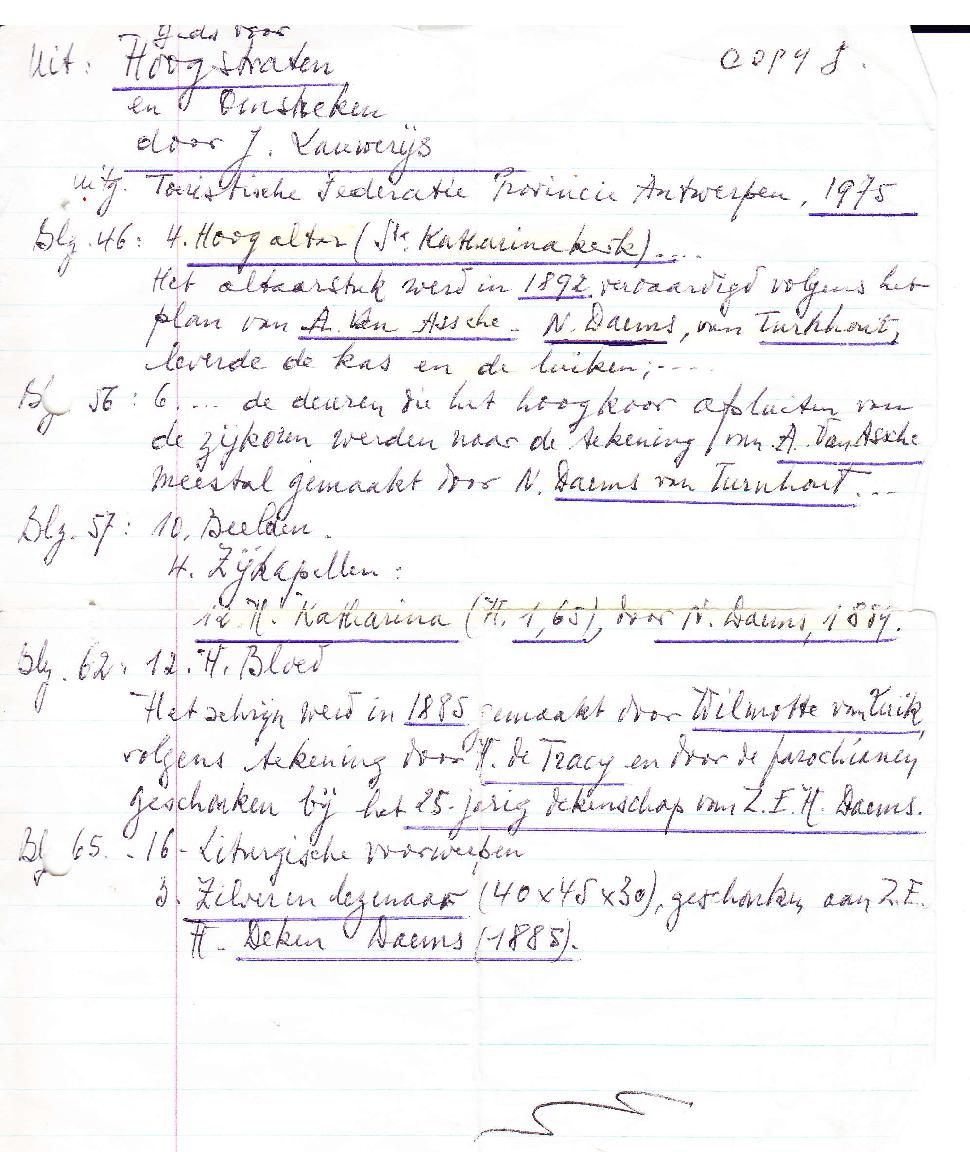 Gids voor
Uit: Hoogstraten
COPY 8.
en Omstreken
door J. Lauwerijs
uitg. Toeristische Federatie Provincie Antwerpen, 1975
Blz. 46: 4. Hoogaltar (Ste Katharinakerk)....
Het altaarstuk werd in 1892 vervaardigd volgens het
plan van A. Van Assche. N. Daems, van Turkhout,
leverde de kas en de luiken;....
Blz 56: 6.... de deuren die het hoogkoor afsluiten van
de zijkoren werden naar de tekening van A. Van Assche
meestal gemaakt door N. Daems van Turnhout...
Blz. 57: 10. Beelden.
4. Zijkapellen:
H. Katharina (H. 1,65), door N. Daems, 1889.
Blz. 62: 12. H. Bloed
Het schrijn werd in 1885 gemaakt door Wilmotte van Luik,
volgens tekening door H. de Tracy en door de parochianen
geschonken bij het 25-jarig dekenschap van Z.E.H. Daems.
Blz 65. - 16 - Liturgische voorwerpen
3. Zilveren degenaar (40x45x30), geschonken aan Z.E.
H. Deken Daems (1885).